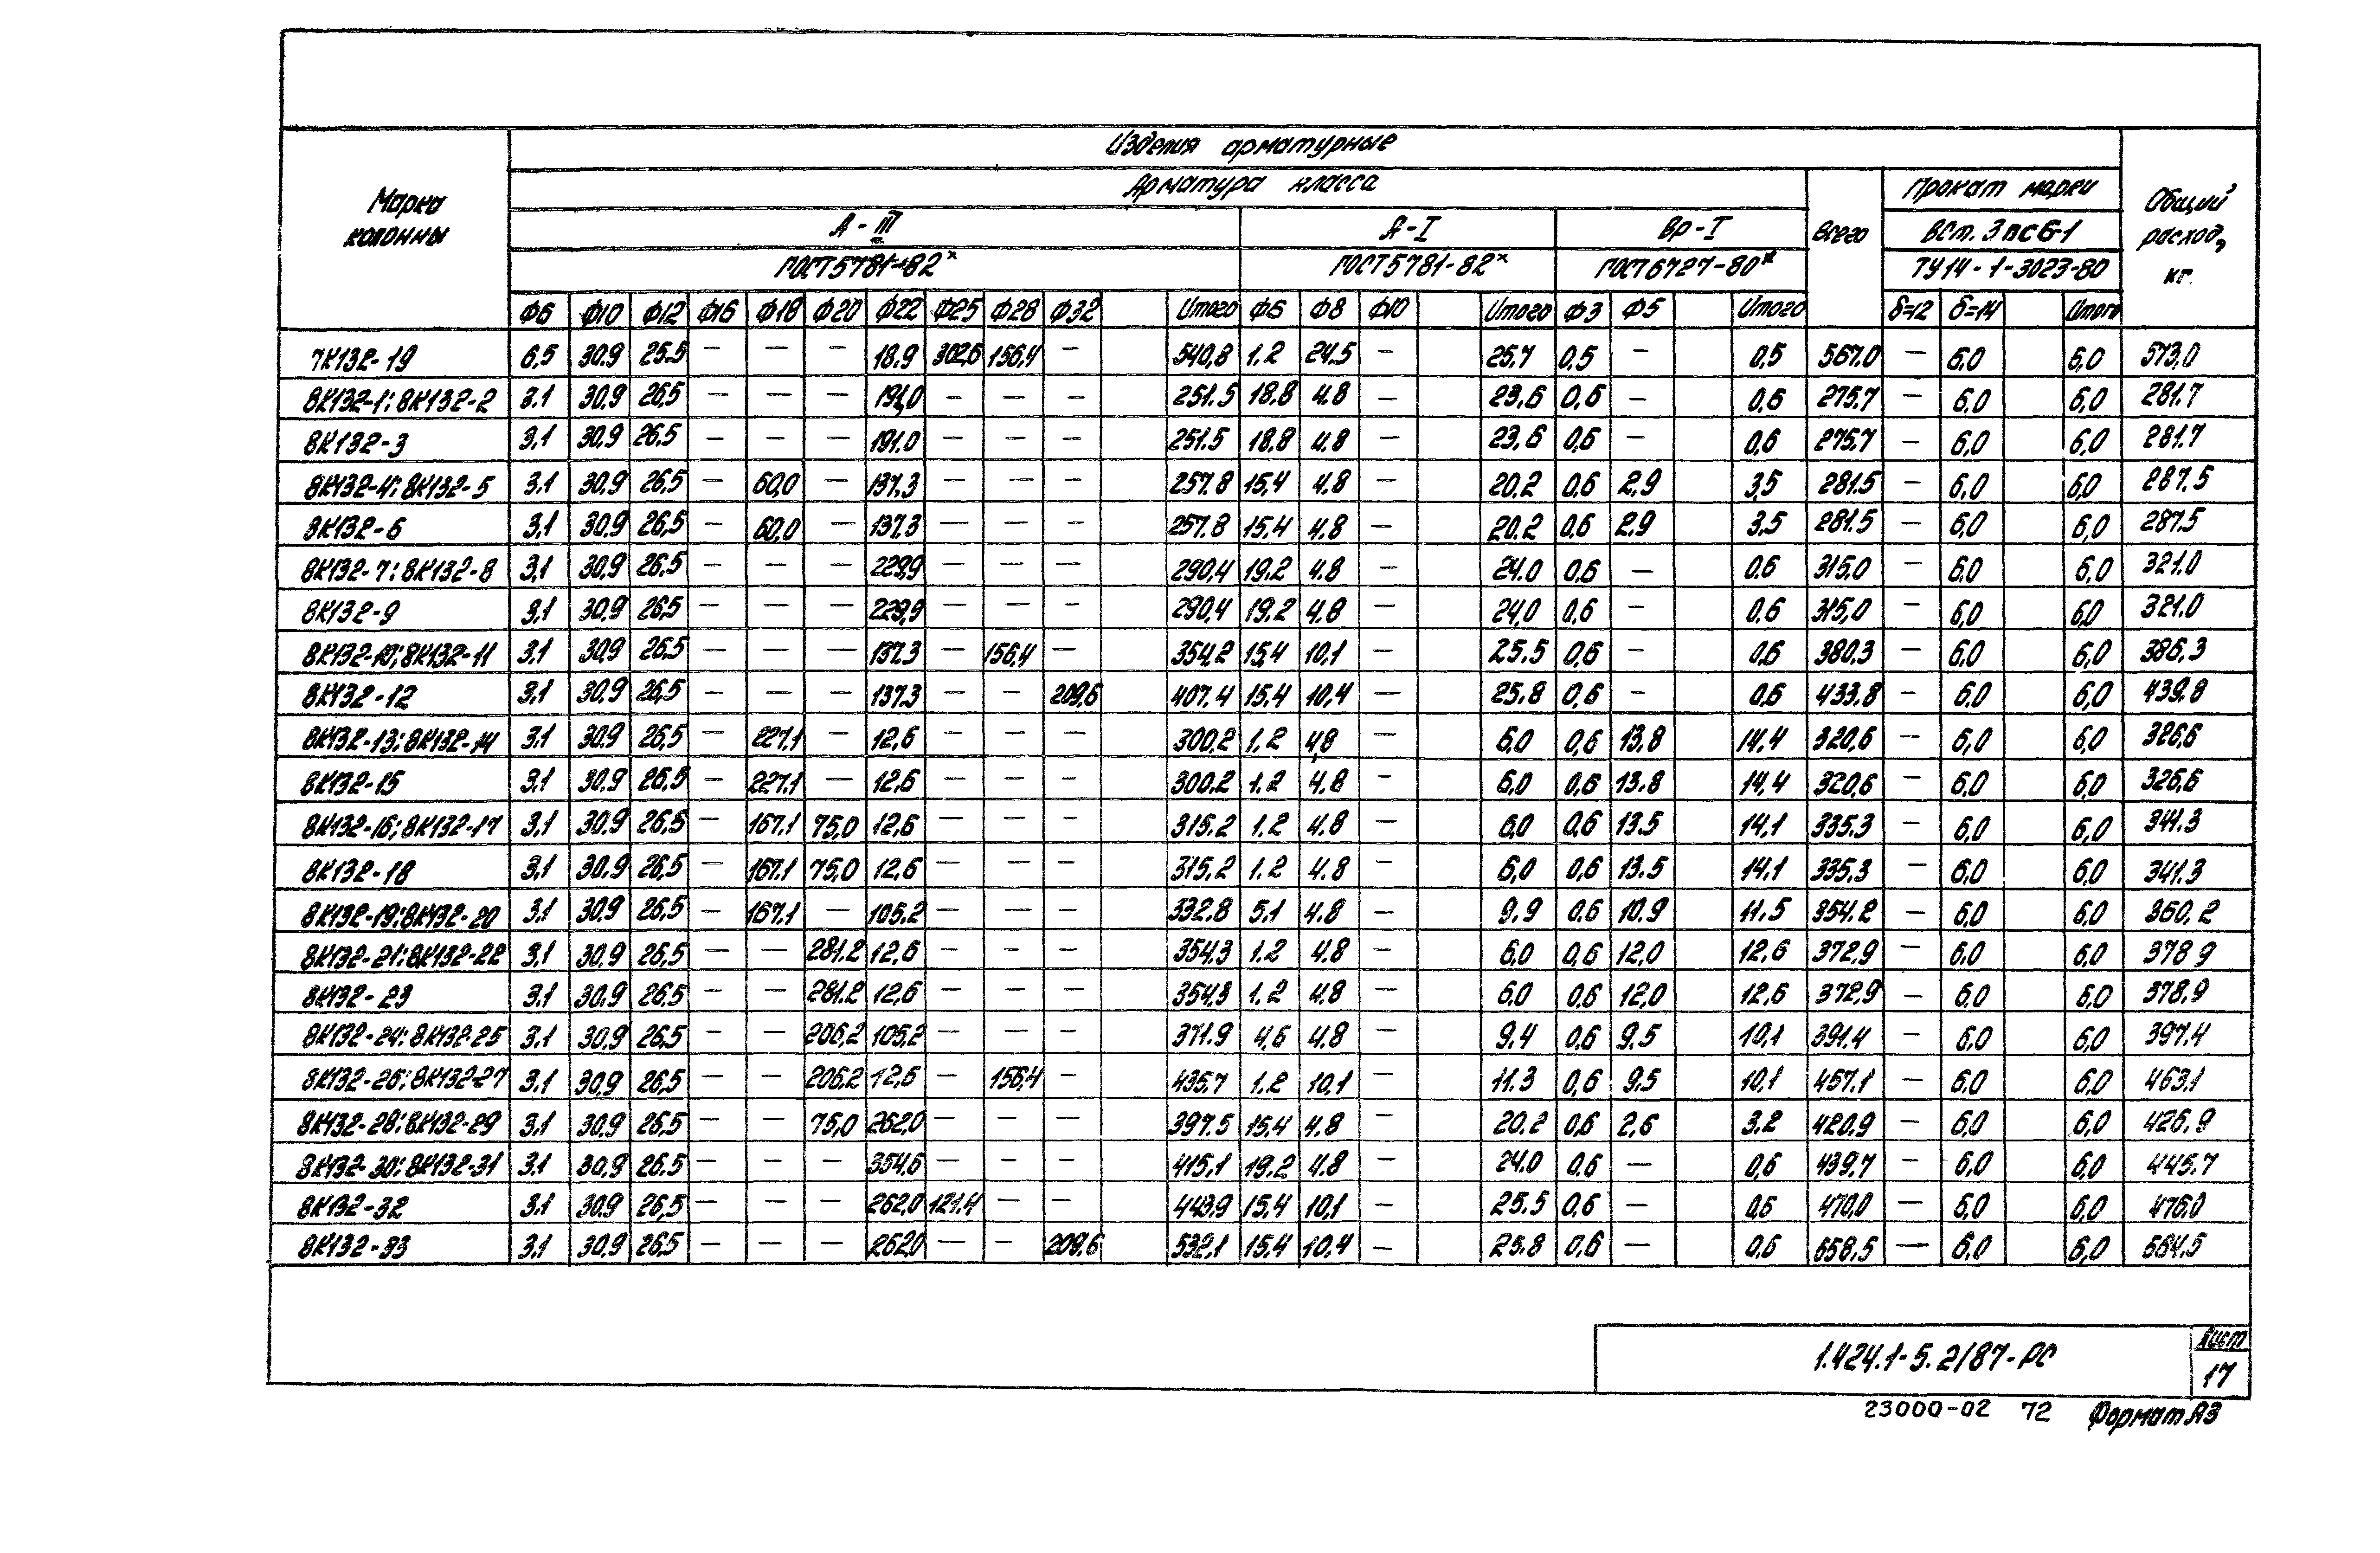 Изделия арматурные
Марка колонны
Арматура класса
Всего
Прокат марки
Общий расход, кг.
А-III
А-I
Вр-I
Вст.3пс6-1
ГОСТ5781-82*
ГОСТ5781-82*
ГОСТ6727-80*
ТУ14-1-3023-80
Ф6 Ф10 Ф12 Ф16 Ф18 Ф20 Ф22 Ф25 Ф28 Ф32 Итого Ф6 Ф8 Ф10 Итого Ф3 Ф5 Итого δ=12 δ=14 Итого
7К132-19 6,5 30,9 25.5 — — — 18.9 302,6 156,4 — 540,8 1.2 24.5 — 25,7 0,5 — 0,5 567.0 — 6.0 6,0 573,0
8К132-1; 8К132-2 3.1 30,9 26,5 — — — 191,0 — — — 251.5 18.8 4.8 — 23,6 0,6 — 0,6 275.7 — 6.0 6,0 281.7
8К132-3 3,1 30.9 26,5 — — — 191.0 — — — 251.5 18,8 4.8 — 23,6 0,6 — 0,6 275.7 — 6,0 6,0 281.7
8К132-4; 8К132-5 3.1 30,9 26,5 — 60,0 — 137.3 — — — 257.8 15,4 4.8 — 20.2 0,6 2,9 3,5 281.5 — 6,0 6,0 287.5
8К132-6 3,1 30,9 26,5 — 60,0 — 137.3 — — — 257.8 15,4 4.8 — 20.2 0,6 2,9 3,5 281.5 — 6,0 6,0 287.5
8К132-7; 8К132-8 3,1 30,9 26,5 — — — 229,9 — — — 290,4 19.2 4.8 — 24.0 0,6 — 0.6 315.0 — 6.0 6,0 321.0
8К132-9 3,1 30,9 26,5 — — — 229,9 — — — 290,4 19,2 4.8 — 24,0 0,6 — 0.6 315,0 — 6,0 6,0 321.0
8К132-10; 8К132-11 3,1 30,9 26,5 — — — 137.3 — 156,4 — 354,2 15,4 10,1 — 25.5 0,6 — 0,6 380,3 — 6,0 6,0 386,3
8К132-12 3,1 30,9 26,5 — — — 137.3 — — 209,6 407.4 15,4 10,4 — 25.8 0,6 — 0,6 433.8 — 6,0 6,0 439,8
8К132-13; 8К132-14 3.1 30,9 26,5 — 227.1 — 12,6 — — — 300,2 1.2 4,8 — 6,0 0,6 13,8 14,4 320,6 — 6,0 6,0 326,6
8К132-15 3,1 30,9 26,5 — 227.1 — 12,6 — — — 300.2 1.2 4.8 — 6,0 0,6 13.8 14,4 320,6 — 6,0 6,0 326,6
8К132-16; 8К132-17 3,1 30,9 26,5 — 167.1 75.0 12,6 — — — 315.2 1.2 4.8 — 6,0 0,6 13.5 14,1 335.3 — 6,0 6,0 341.3
8К132-18 3,1 30.9 26,5 — 167.1 75,0 12,6 — — — 315,2 1.2 4.8 — 6,0 0,6 13.5 14,1 335.3 — 6,0 6,0 341.3
8К132-19; 8К132-20 3,1 30,9 26,5 — 167.1 — 105,2 — — — 332.8 5.1 4.8 — 9.9 0,6 10,9 11.5 354.2 — 6,0 6,0 360,2
8К132-21; 8К132-22 3,1 30,9 26,5 — — 281.2 12,6 — — — 354,3 1.2 4.8 — 6,0 0,6 12,0 12,6 372,9 — 6.0 6,0 378 9
8К132-23 3,1 30,9 26,5 — — 281.2 12,6 — — — 354,3 1.2 4.8 — 6,0 0,6 12,0 12,6 372,9 — 6.0 6,0 378,9
8К132-24; 8К132-25 3,1 30,9 26,5 — — 206,2 105,2 — — — 371.9 4,6 4.8 — 9.4 0,6 9.5 10,1 391.4 — 6,0 6,0 397.4
8К132-26; 8К132-27 3,1 30,9 26,5 — — 206,2 12,6 — 156,4 — 435,7 1.2 10,1 — 11.3 0,6 9.5 10,1 457.1 — 6,0 6,0 463.1
8К132-28; 8К132-29 3,1 30,9 26,5 — — 75,0 262,0 — — — 397.5 15.4 4.8 — 20.2 0,6 2,6 3.2 420,9 — 6,0 6,0 426,9
8К132-30; 8К132-31 3.1 30,9 26,5 — — — 354,6 — — — 415,1 19.2 4.8 — 24.0 0,6 — 0,6 439,7 — 6,0 6,0 445.7
8К132-32 3.1 30,9 26,5 — — — 262,0 121.4 — — 443,9 15,4 10,1 — 25.5 0,6 — 0,6 470,0 — 6,0 6,0 476.0
8К132-33 3,1 30,9 26,5 — — — 262,0 — — 209,6 532,1 15.4 10,4 — 25.8 0,6 — 0,6 558,5 — 6,0 6,0 564.5
1.424.1-5.2/87-РС
Лист
17
23000-02 72 Формат А3